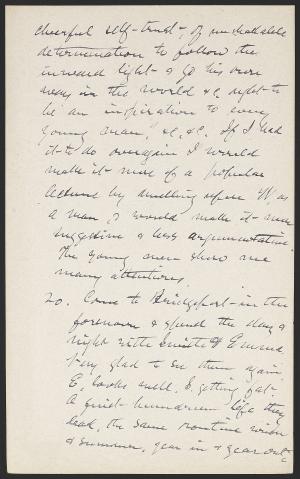 cheerful self-trust, of unshakable
determination to follow the
inward light & go his own
way in the world &c, ought to
be an inspiration to every
young man", &c, &c. If I had
it to do over again I would
make it more of a popular
lecture by dwelling upon W. as
a man, I would make it more
suggestive & less argumentative.
The young men show me
many attentions.
20. Come to Bridgeport in the
forenoon & spend the day &
night with Emma.
Very glad to see them again.
E. looks well, E. getting fat.
A quiet humdrum life they
lead, the same routine winter
& summer, year in & year out.